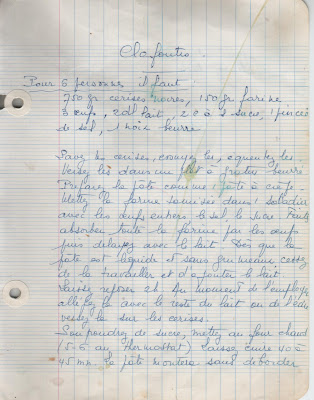 Clafoutis
Pour 6 personnes il faut
750 gr cerises noires, 150 gr farine
3 œufs, 2 dl lait 20 à s sucre, 1 pincée
de sel, 1 noix beurre
Lavez les cerises, essuyez les, equeutez les
Versez les dans un plat à gratin beurré
Préparez la pâte comme pâte à crêpe
Mettez la farine tamisée dans saladier
avec les œufs entiers le sel, le sucre. Faites
absorber toute la farine par les œufs
puis delayez avec le lait. Dès que la
pâte est liquide et sans grumeaux cessez
de la travailler et d'ajouter le lait.
Laissez reposer 2h. Au moment de l'employer
allongez la avec le reste du lait ou de l'eau
versez la sur les cerises.
Saupoudrez de sucre, mettez au four chaud
(5-6 au thermostat) laissez cuire 40 à
45 mn. la pâte montera sans déborder